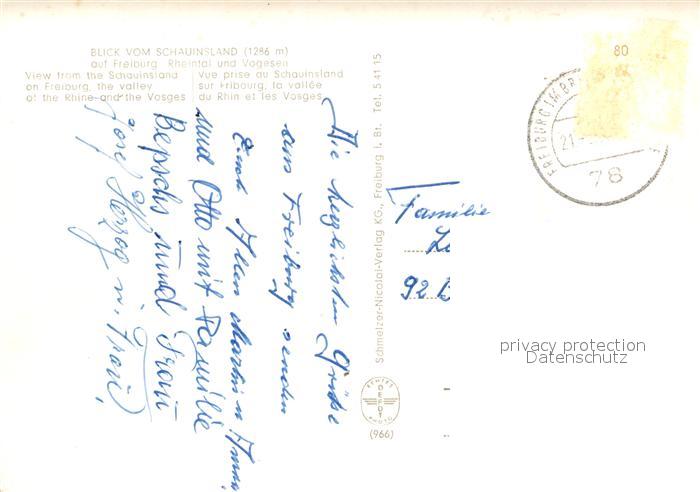 BLICK VOM SCHAUINSLAND (1286 m)
auf Freiburg Rheintal und Vogesen
View from the Schauinsland
on Freiburg, the valley
of the Rhine and the Vosges
Vue prise au Schauinsland
sur Fribourg, la vallée
du Rhin et les Vosges
Die herzlichsten Grüße
aus Freiburg senden
Euch Allen Martin u. Anna
und Otto mit Familie
und Frau
Josef Herzog u. Frau
Schmelzer-Nicolai-Verlag KG., Freiburg i. Br. Tel. 5 41 15
ECHTES
DEFOT
PHOTO
(966)
Familie
92
80
FREIBURG IM BR
21
78
privacy protection
Datenschutz